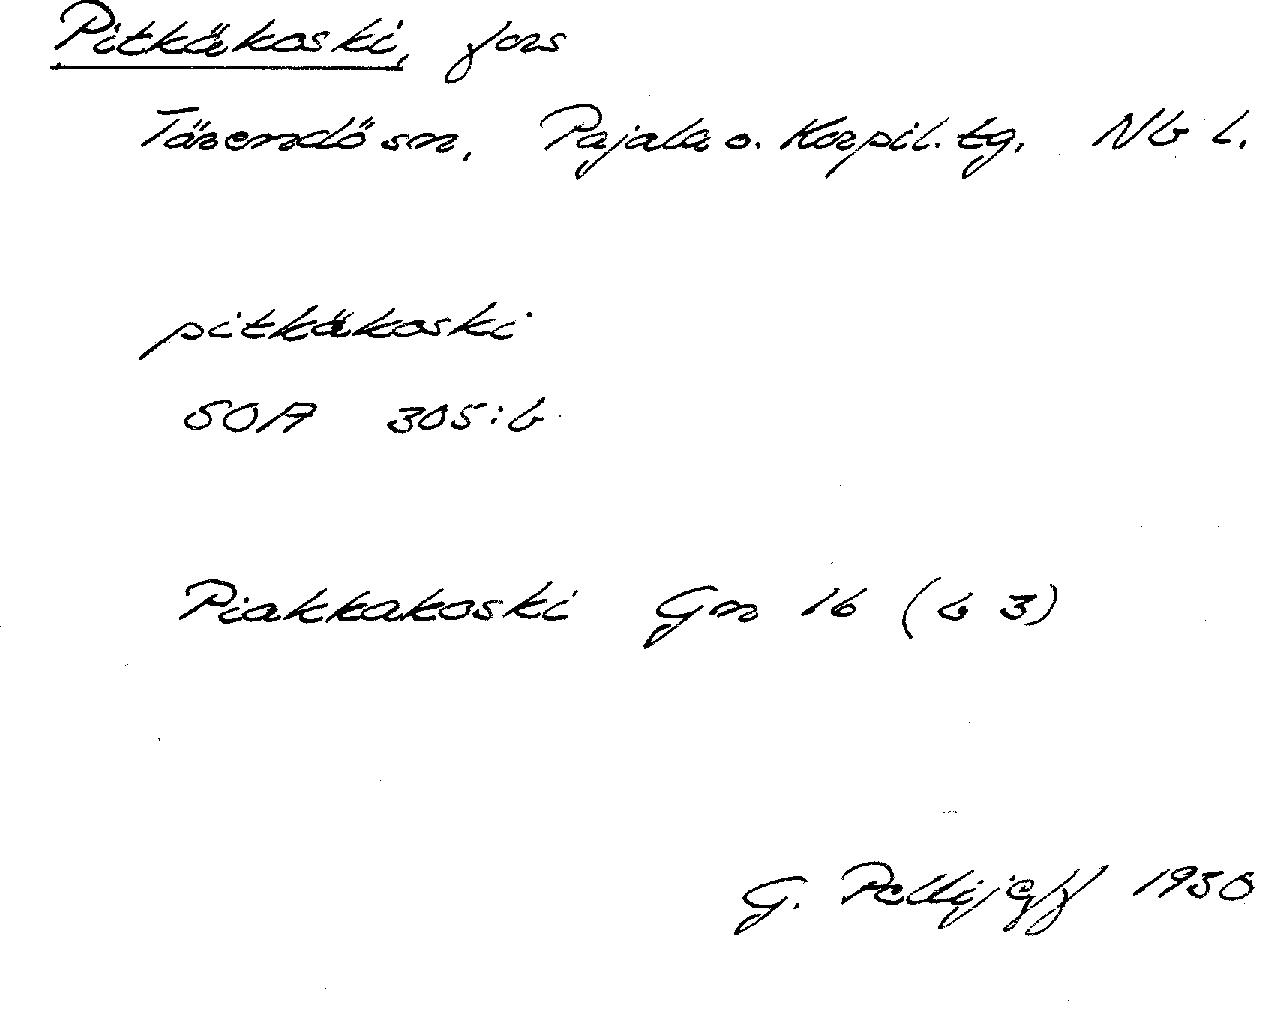 Pitkäkoski, fors
Tärendö sn. Pajala o. Korpil. tg. Nb l.
pitkäkoski
SOA 305:6
Piakkakoski Gm 16 (b 3)
G. Pellijeff 1950